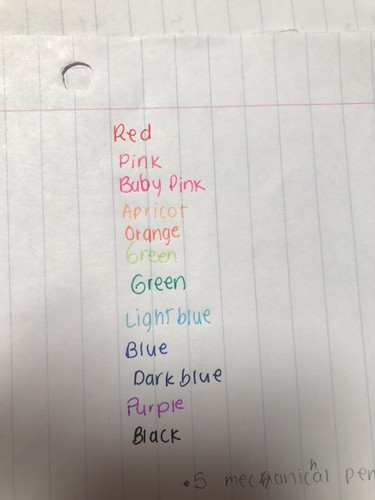 Red
Pink
Baby Pink
Apricot
Orange
Green
Green
Light blue
Blue
Dark blue
Purple
Black
.5 mechanical pen